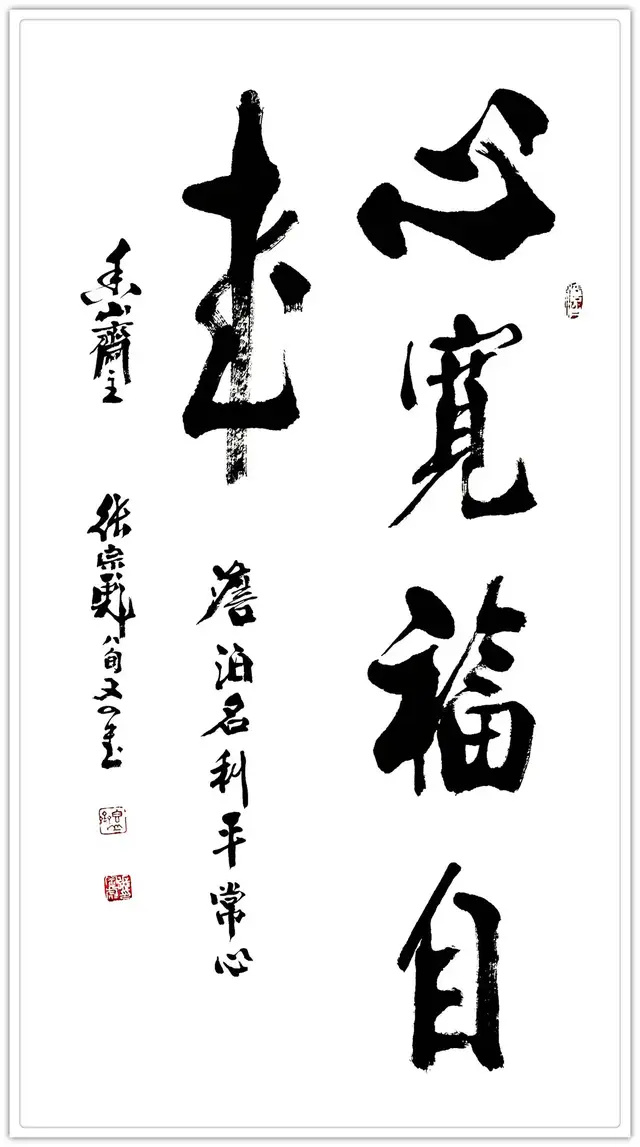 心寬福自
來
澹泊名利平常心
山齋主
張宗彪八旬又書